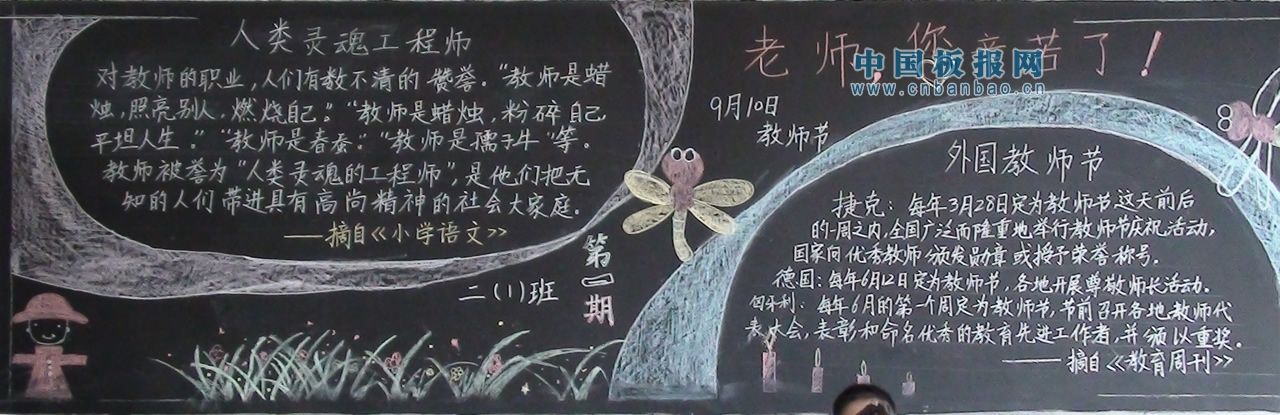 人类灵魂工程师
对教师的职业,人们有数不清的赞誉。“教师是蜡
烛,照亮别人,燃烧自己。”“教师是蜡烛,粉碎自己,
平坦人生。”“教师是春蚕。”“教师是孺子牛”等。
教师被誉为“人类灵魂的工程师”,是他们把无
知的人们带进具有高尚精神的社会大家庭。
——摘自《小学语文》
二(1)班
第一期
老师,您辛苦了!
中国板报网
www.cnbanbao.cn
9月10日
教师节
外国教师节
捷克:每年3月28日定为教师节这天前后
的一周之内,全国广泛而隆重地举行教师节庆祝活动,
国家向优秀教师颁发勋章或授予荣誉称号。
德国:每年6月12日定为教师节,各地开展尊敬师长活动。
匈牙利:每年6月的第一个周定为教师节,节前召开各地教师代
表大会,表彰和命名优秀的教育先进工作者,并颁以重奖。
——摘自《教育周刊》